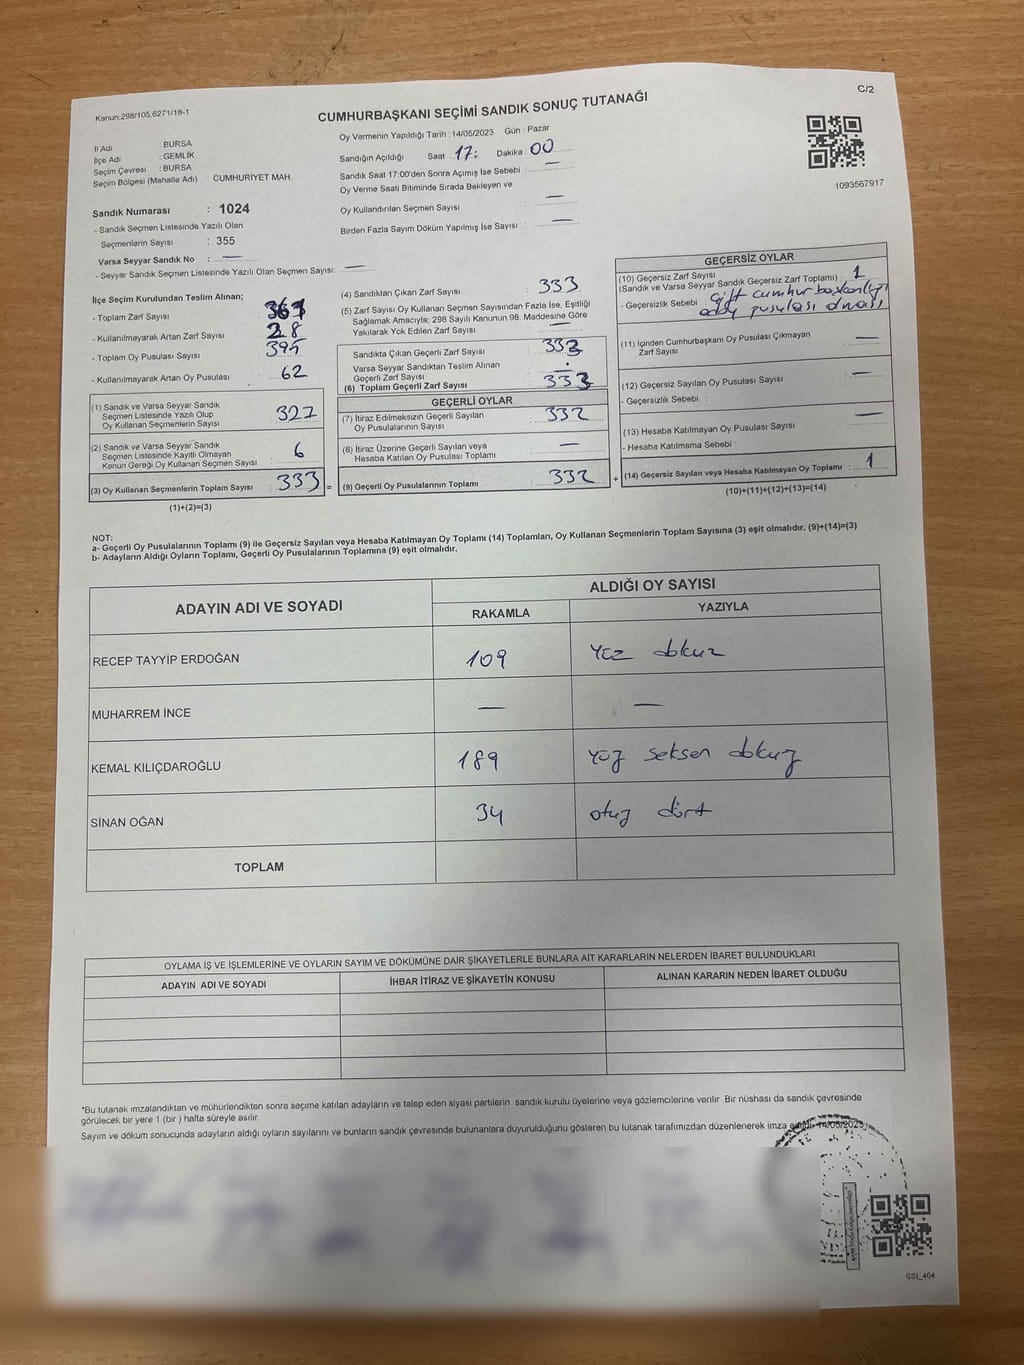 Kanun:298/105,6271/18-1
C/2
CUMHURBAŞKANI SEÇİMİ SANDIK SONUÇ TUTANAĞI
İl Adı : BURSA
İlçe Adı : GEMLİK
Seçim Çevresi : BURSA
Seçim Bölgesi (Mahalle Adı) : CUMHURİYET MAH.
Oy Vermenin Yapıldığı Tarih : 14/05/2023 Gün : Pazar
Sandığın Açıldığı Saat 17: Dakika : 00
Sandık Saat 17:00'den Sonra Açımış İse Sebebi : —
Oy Verme Saati Bitiminde Sırada Bekleyen ve
Oy Kullandırılan Seçmen Sayısı : —
Birden Fazla Sayım Döküm Yapılmış İse Sayısı : —
1093567917
Sandık Numarası : 1024
- Sandık Seçmen Listesinde Yazılı Olan
Seçmenlerin Sayısı : 355
Varsa Seyyar Sandık No : —
- Seyyar Sandık Seçmen Listesinde Yazılı Olan Seçmen Sayısı: —
İlçe Seçim Kurulundan Teslim Alınan;
- Toplam Zarf Sayısı :
- Kullanılmayarak Artan Zarf Sayısı : 28
- Toplam Oy Pusulası Sayısı : 395
- Kullanılmayarak Artan Oy Pusulası : 62
(1) Sandık ve Varsa Seyyar Sandık
Seçmen Listesinde Yazılı Olup
Oy Kullanan Seçmenlerin Sayısı : 327
(2) Sandık ve Varsa Seyyar Sandık
Seçmen Listesinde Kayıtlı Olmayan
Kanun Gereği Oy Kullanan Seçmen Sayısı : 6
(3) Oy Kullanan Seçmenlerin Toplam Sayısı : 333 =
(1)+(2)=(3)
(4) Sandıktan Çıkan Zarf Sayısı : 333
(5) Zarf Sayısı Oy Kullanan Seçmen Sayısından Fazla İse, Eşitliği
Sağlamak Amacıyla; 298 Sayılı Kanunun 98. Maddesine Göre
Yakılarak Yok Edilen Zarf Sayısı : —
Sandıkta Çıkan Geçerli Zarf Sayısı : 333
Varsa Seyyar Sandıktan Teslim Alınan
Geçerli Zarf Sayısı :
(6) Toplam Geçerli Zarf Sayısı : 333
GEÇERLİ OYLAR
(7) İtiraz Edilmeksizin Geçerli Sayılan
Oy Pusulalarının Sayısı : 332
(8) İtiraz Üzerine Geçerli Sayılan veya
Hesaba Katılan Oy Pusulası Toplamı : —
(9) Geçerli Oy Pusulalarının Toplamı : 332 +
GEÇERSİZ OYLAR
(10) Geçersiz Zarf Sayısı
(Sandık ve Varsa Seyyar Sandık Geçersiz Zarf Toplamı) : 1
- Geçersizlik Sebebi : Çift cumhurbaşkanlığı
oy pusulası olması
(11) İçinden Cumhurbaşkanı Oy Pusulası Çıkmayan
Zarf Sayısı : —
(12) Geçersiz Sayılan Oy Pusulası Sayısı : —
- Geçersizlik Sebebi :
(13) Hesaba Katılmayan Oy Pusulası Sayısı : —
- Hesaba Katılmama Sebebi :
(14) Geçersiz Sayılan veya Hesaba Katılmayan Oy Toplamı : 1
(10)+(11)+(12)+(13)=(14)
NOT:
a- Geçerli Oy Pusulalarının Toplamı (9) ile Geçersiz Sayılan veya Hesaba Katılmayan Oy Toplamı (14) Toplamları, Oy Kullanan Seçmenlerin Toplam Sayısına (3) eşit olmalıdır. (9)+(14)=(3)
b- Adayların Aldığı Oyların Toplamı, Geçerli Oy Pusulalarının Toplamına (9) eşit olmalıdır.
ADAYIN ADI VE SOYADI
ALDIĞI OY SAYISI
RAKAMLA YAZIYLA
RECEP TAYYİP ERDOĞAN 109 yüz dokuz
MUHARREM İNCE — —
KEMAL KILIÇDAROĞLU 189 yüz seksen dokuz
SİNAN OĞAN 34 otuz dört
TOPLAM
OYLAMA İŞ VE İŞLEMLERİNE VE OYLARIN SAYIM VE DÖKÜMÜNE DAİR ŞİKAYETLERLE BUNLARA AİT KARARLARIN NELERDEN İBARET BULUNDUKLARI
ADAYIN ADI VE SOYADI İHBAR İTİRAZ VE ŞİKAYETİN KONUSU ALINAN KARARIN NEDEN İBARET OLDUĞU
*Bu tutanak imzalandıktan ve mühürlendikten sonra seçime katılan adayların ve talep eden siyasi partilerin sandık kurulu üyelerine veya gözlemcilerine verilir. Bir nüshası da sandık çevresinde
görülecek bir yere 1 (bir ) hafta süreyle asılır.
Sayım ve döküm sonucunda adayların aldığı oyların sayılarını ve bunların sandık çevresinde bulunanlara duyurulduğunu gösteren bu tutanak tarafımızdan düzenlenerek imza edildi. 14/05/2023
SSİ_404